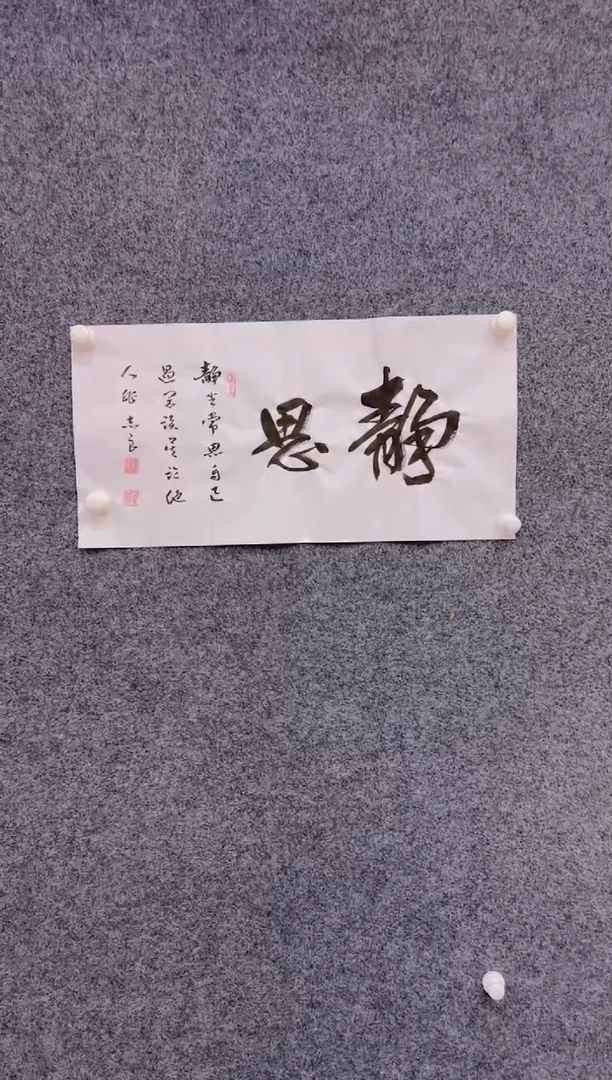 静思
静坐常思自己
过闲谈莫论他
人非志良